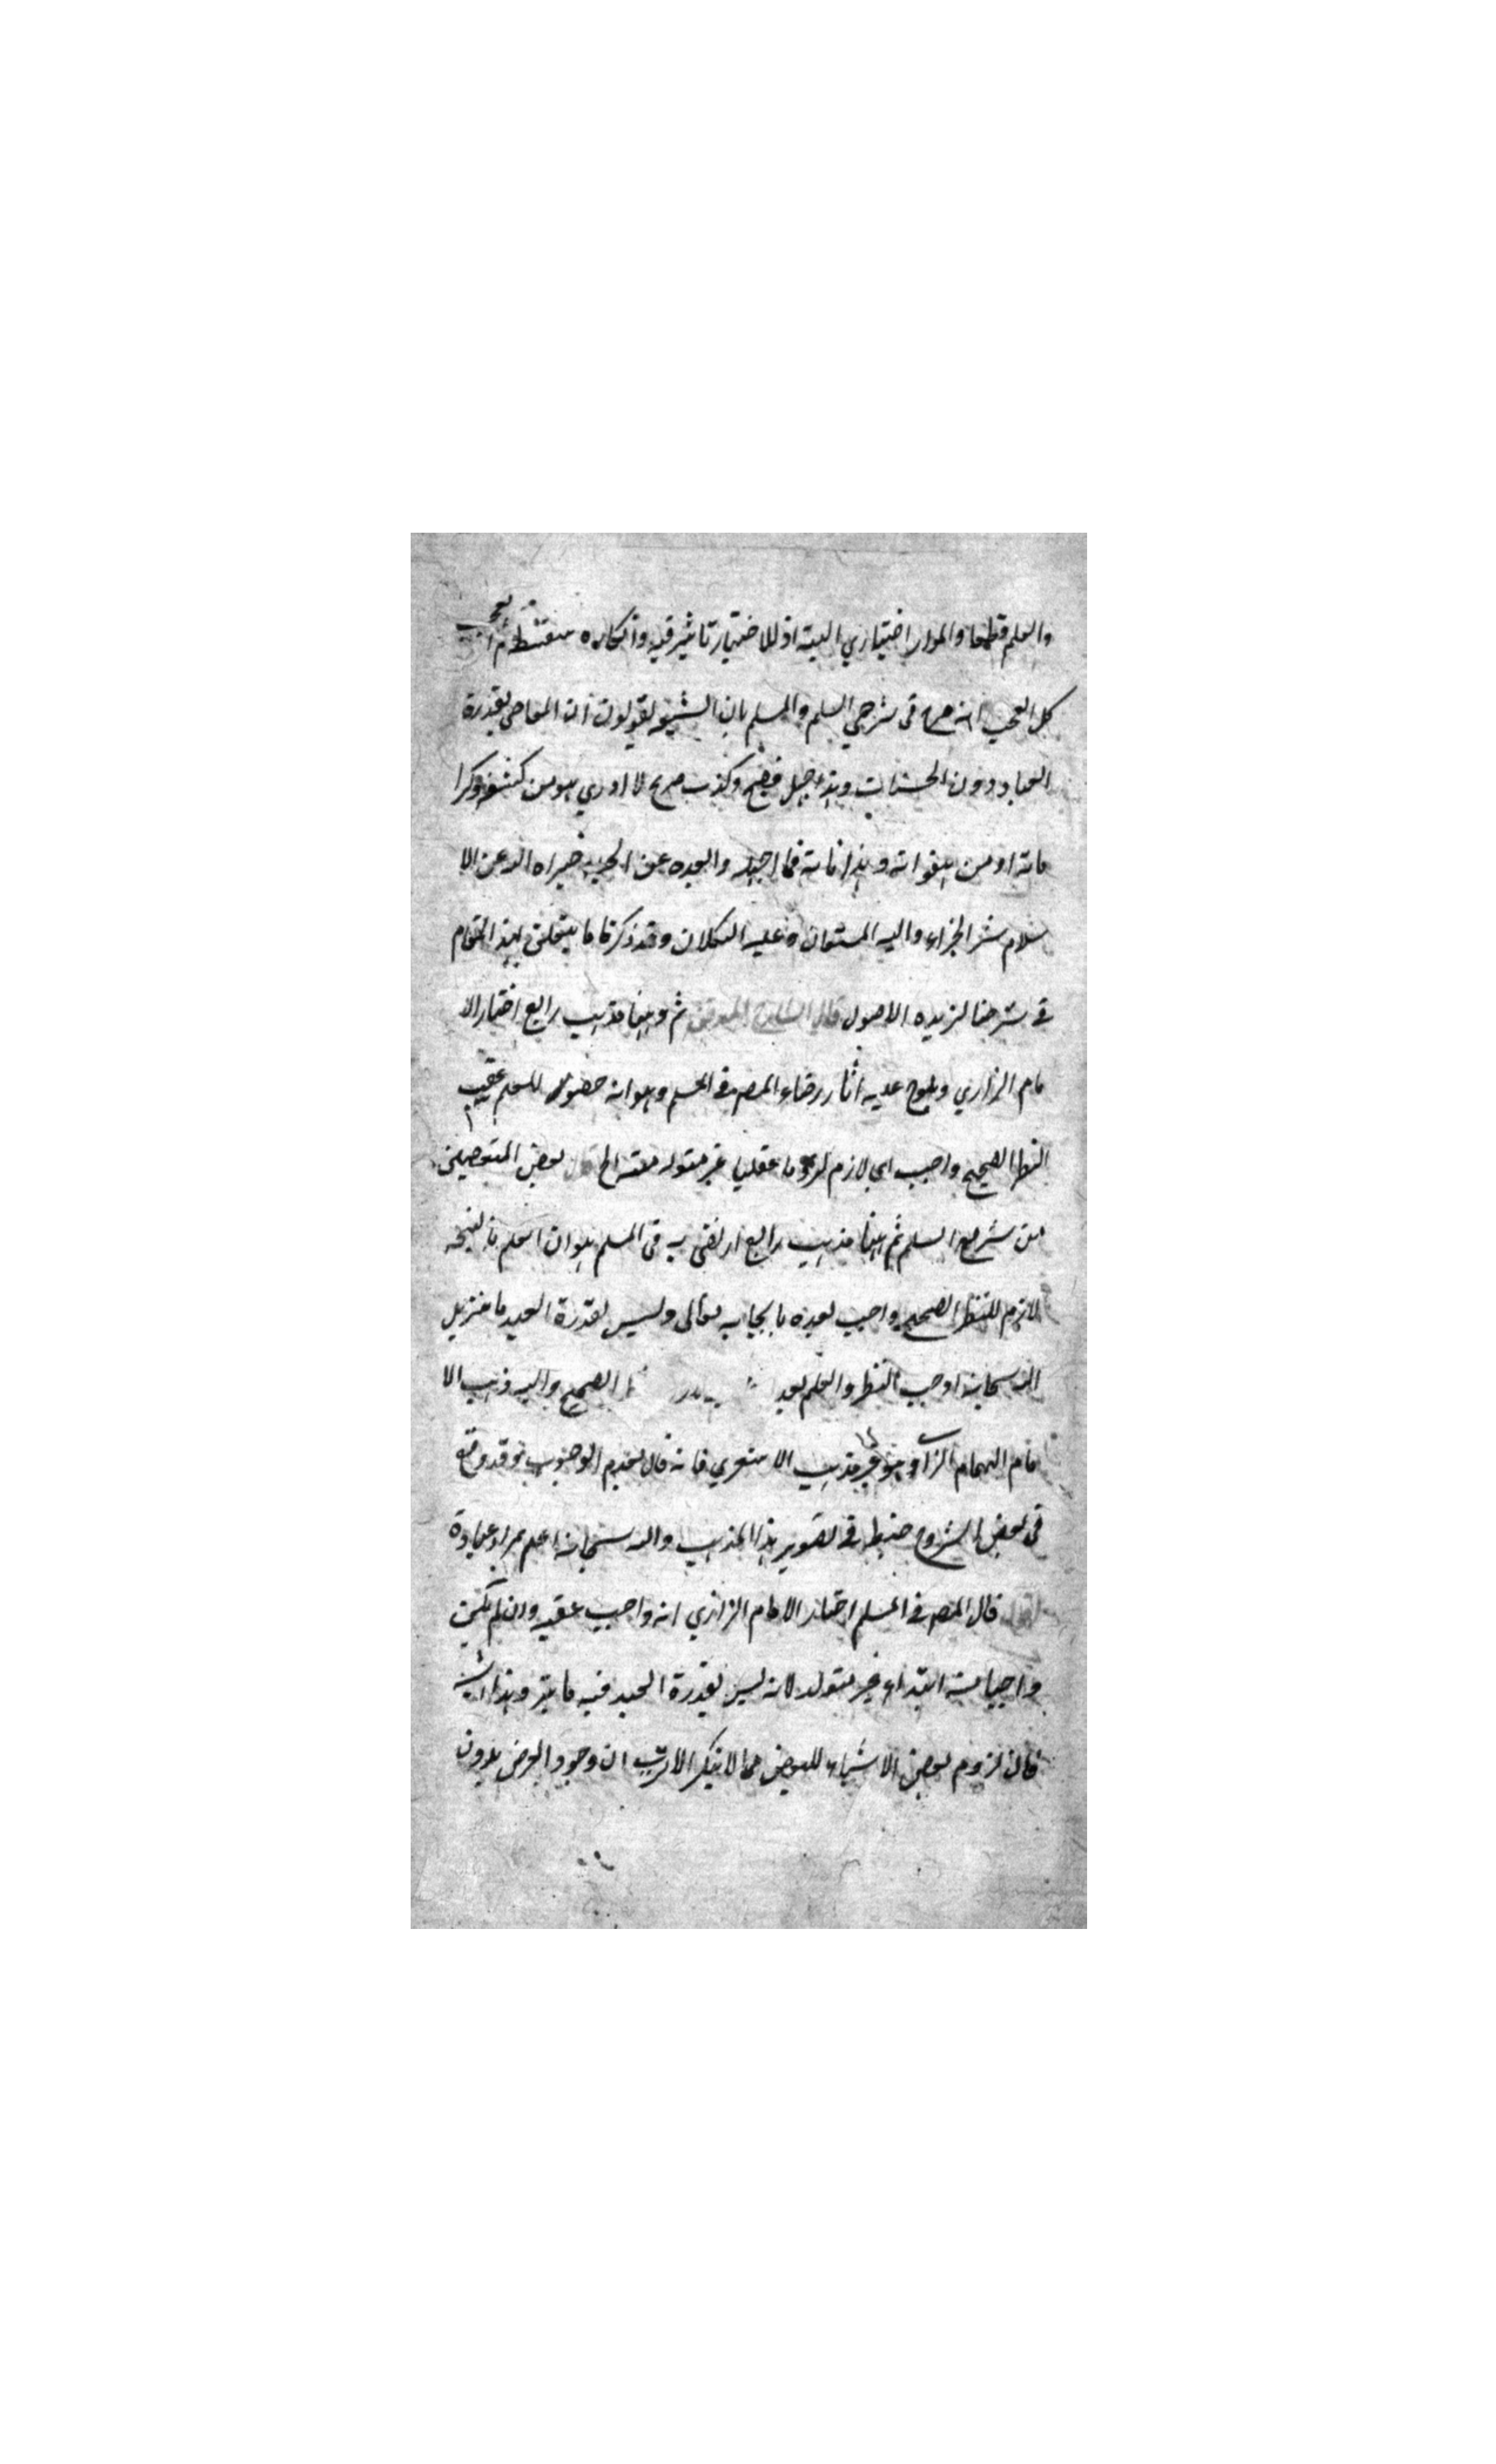 والعلم قطعا والموارد اختياري البتة اذ للاختيار تاثير فيه وانكاره سفسطة ثم العجب
كل العجب انه صرح في شرحي السلم والمسلم بان الشيعة يقولون ان المعاصي بقدرة
العباد دون الحسنات وهذا جهل فضيح وكذب صريح لا ادري هو من
او من هفواته وهذا فما اجهله وابعده عن الحق جزاه الله عن الا
سلام شر الجزاء واليه المستعان وعليه التكلان وقد ذكرنا ما يتعلق بهذا المقام
في شرحنا لزبدة الاصول قال الشارح ثم وههنا مذهب رابع اختار الا
مام الرازي ويلوح عليه اثار رضاء المصـ في المسلم وهو انه حضور العلم عقيب
النظر الصحيح واجب اي لازم لزوما عقليا غير متولد منه الخ قال بعض
من شرح السلم ثم ههنا مذهب رابع ارتضى به في المسلم هو ان العلم بالنتيجة
لازم للنظر الصحيح واجب بعده بايجابه تعالى وليس لقدرة العبد ما
الله سبحانه اوجب النظر والعلم بعد الصحيح واليه ذهب الا
مام الهمام الرازي وهو غير مذهب الاشعري فانه قال بعدم الوجوب وقد وقع
في بعض الشروح خبط في تصوير هذا المذهب والله سبحانه اعلم بمراد عباده
قال المصـ في المسلم اختار الامام الرازي انه واجب عقيبه وان لم يكن
واجبا منه ابتداء غير متولد لانه ليس لقدرة العبد فيه تاثير وهذا اشبه
فان لزوم بعض الاشياء للبعض مما لا ينكر الا ترى ان وجود العرض بدون